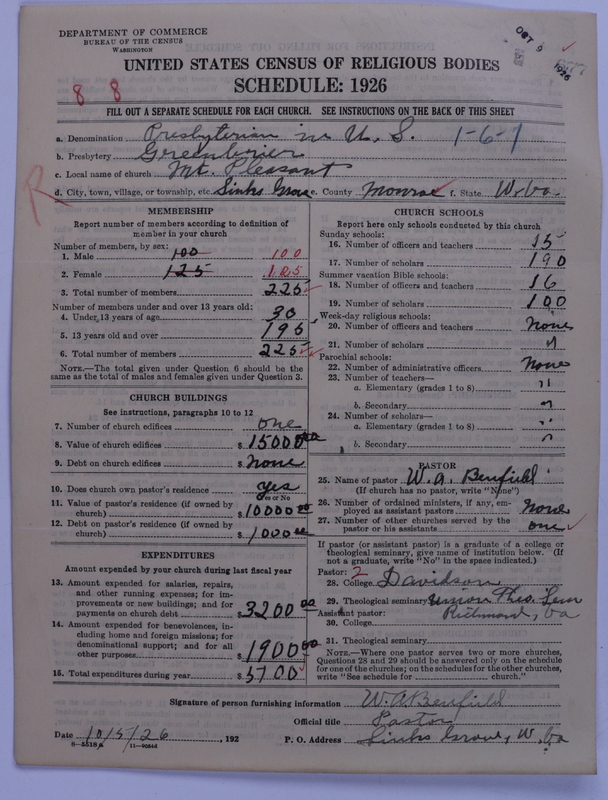 DEPARTMENT OF COMMERCE
BUREAU OF THE CENSUS
WASHINGTON
OCT 9 1926
UNITED STATES CENSUS OF RELIGIOUS BODIES
SCHEDULE: 1926
8 8
FILL OUT A SEPARATE SCHEDULE FOR EACH CHURCH. SEE INSTRUCTIONS ON THE BACK OF THIS SHEET
a. Denomination Presbyterian in U.S. 1-6-1
b. Presbytery Greenbrier
c. Local name of church Mt. Pleasant
R
d. City, town, village, or township, etc. Sinks Grove e. County Monroe f. State W.Va
MEMBERSHIP
Report number of members according to definition of member in your church
Number of members, by sex:
1. Male 100 100
2. Female 125 125
3. Total number of members 225
Number of members under and over 13 years old:
4. Under 13 years of age 30
5. 13 years old and over 195
6. Total number of members 225
NOTE.—The total given under Question 6 should be the same as the total of males and females given under Question 3.
CHURCH BUILDINGS
See instructions, paragraphs 10 to 12
7. Number of church edifices one
8. Value of church edifices $ 15000 00
9. Debt on church edifices $ none
10. Does church own pastor's residence yes
Yes or No
11. Value of pastor's residence (if owned by church) $ 10000 00
12. Debt on pastor's residence (if owned by church) $ 1000 00
EXPENDITURES
Amount expended by your church during last fiscal year
13. Amount expended for salaries, repairs, and other running expenses; for improvements or new buildings; and for payments on church debt $ 3200 00
14. Amount expended for benevolences, including home and foreign missions; for denominational support; and for all other purposes $ 1900 00
15. Total expenditures during year $ 5700
CHURCH SCHOOLS
Report here only schools conducted by this church
Sunday schools:
16. Number of officers and teachers 15
17. Number of scholars 190
Summer vacation Bible schools:
18. Number of officers and teachers 16
19. Number of scholars 100
Week-day religious schools:
20. Number of officers and teachers None
21. Number of scholars "
Parochial schools:
22. Number of administrative officers None
23. Number of teachers—
a. Elementary (grades 1 to 8) "
b. Secondary "
24. Number of scholars—
a. Elementary (grades 1 to 8) "
b. Secondary "
PASTOR
25. Name of pastor W. A. Benfield
(If church has no pastor, write "None")
26. Number of ordained ministers, if any, employed as assistant pastors None
27. Number of other churches served by the pastor or his assistants one
If pastor (or assistant pastor) is a graduate of a college or theological seminary, give name of institution below. (If not a graduate, write "No" in the space indicated.)
Pastor: 2
28. College Davidson
29. Theological seminary Union Theo. Sem
Assistant pastor: Richmond, Va
30. College
31. Theological seminary
NOTE.—Where one pastor serves two or more churches, Questions 28 and 29 should be answered only on the schedule for one of the churches; on the schedules for the other churches, write "See schedule for church."
Signature of person furnishing information W. A Benfield
Official title Pastor
Date 10/5/26, 192 P. O. Address Sinks Grove, W. Va
8-5518a 11-9554d